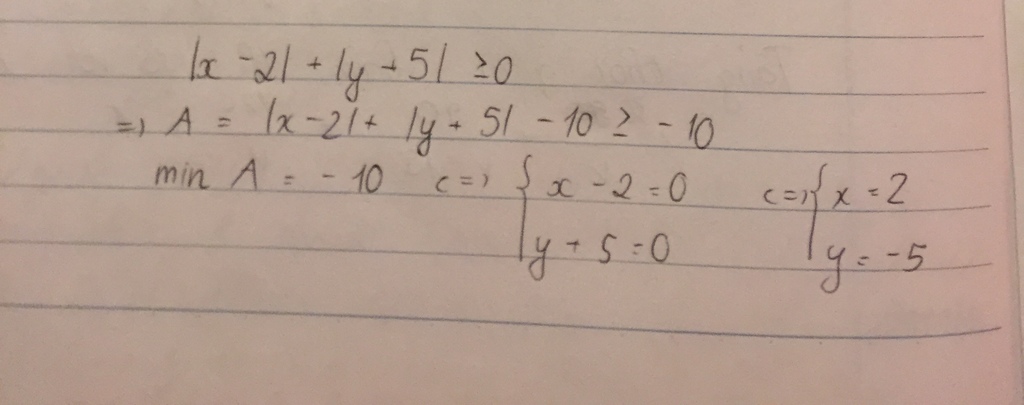 |x - 2| + |y + 5| ≥ 0
=> A = |x - 2| + |y + 5| - 10 ≥ - 10
min A = - 10 <=> { x - 2 = 0 <=> { x = 2
y + 5 = 0 y = - 5